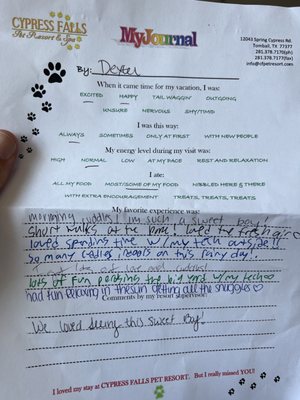 CYPRESS FALLS
Pet Resort & Spa
MyJournal
12045 Spring Cypress Rd.
Tomball, TX 77377
281.378.7170(ph)
281.378.7171(fax)
info@cfpetresort.com
By: Dexter
When it came time for my vacation, I was:
EXCITED HAPPY TAIL WAGGIN' OUTGOING
UNSURE NERVOUS SHY/TIMID
I was this way:
ALWAYS SOMETIMES ONLY AT FIRST WITH NEW PEOPLE
My energy level during my visit was:
HIGH NORMAL LOW AT MY PACE REST AND RELAXATION
I ate:
ALL MY FOOD MOST/SOME OF MY FOOD NIBBLED HERE & THERE
WITH EXTRA ENCOURAGEMENT TREATS, TREATS, TREATS
My favorite experience was:
morning cuddles! I'm such a sweet boy!
Short walks at the time! loved the fresh air
loved spending time w/ my tech
so many cuddles on this rainy day!
lots of fun big yard w/ my tech
had fun relaxing in the sun getting all the snuggles
Comments by my resort supervisor:
We loved seeing this sweet Boy!
I loved my stay at CYPRESS FALLS PET RESORT. But I really missed YOU!